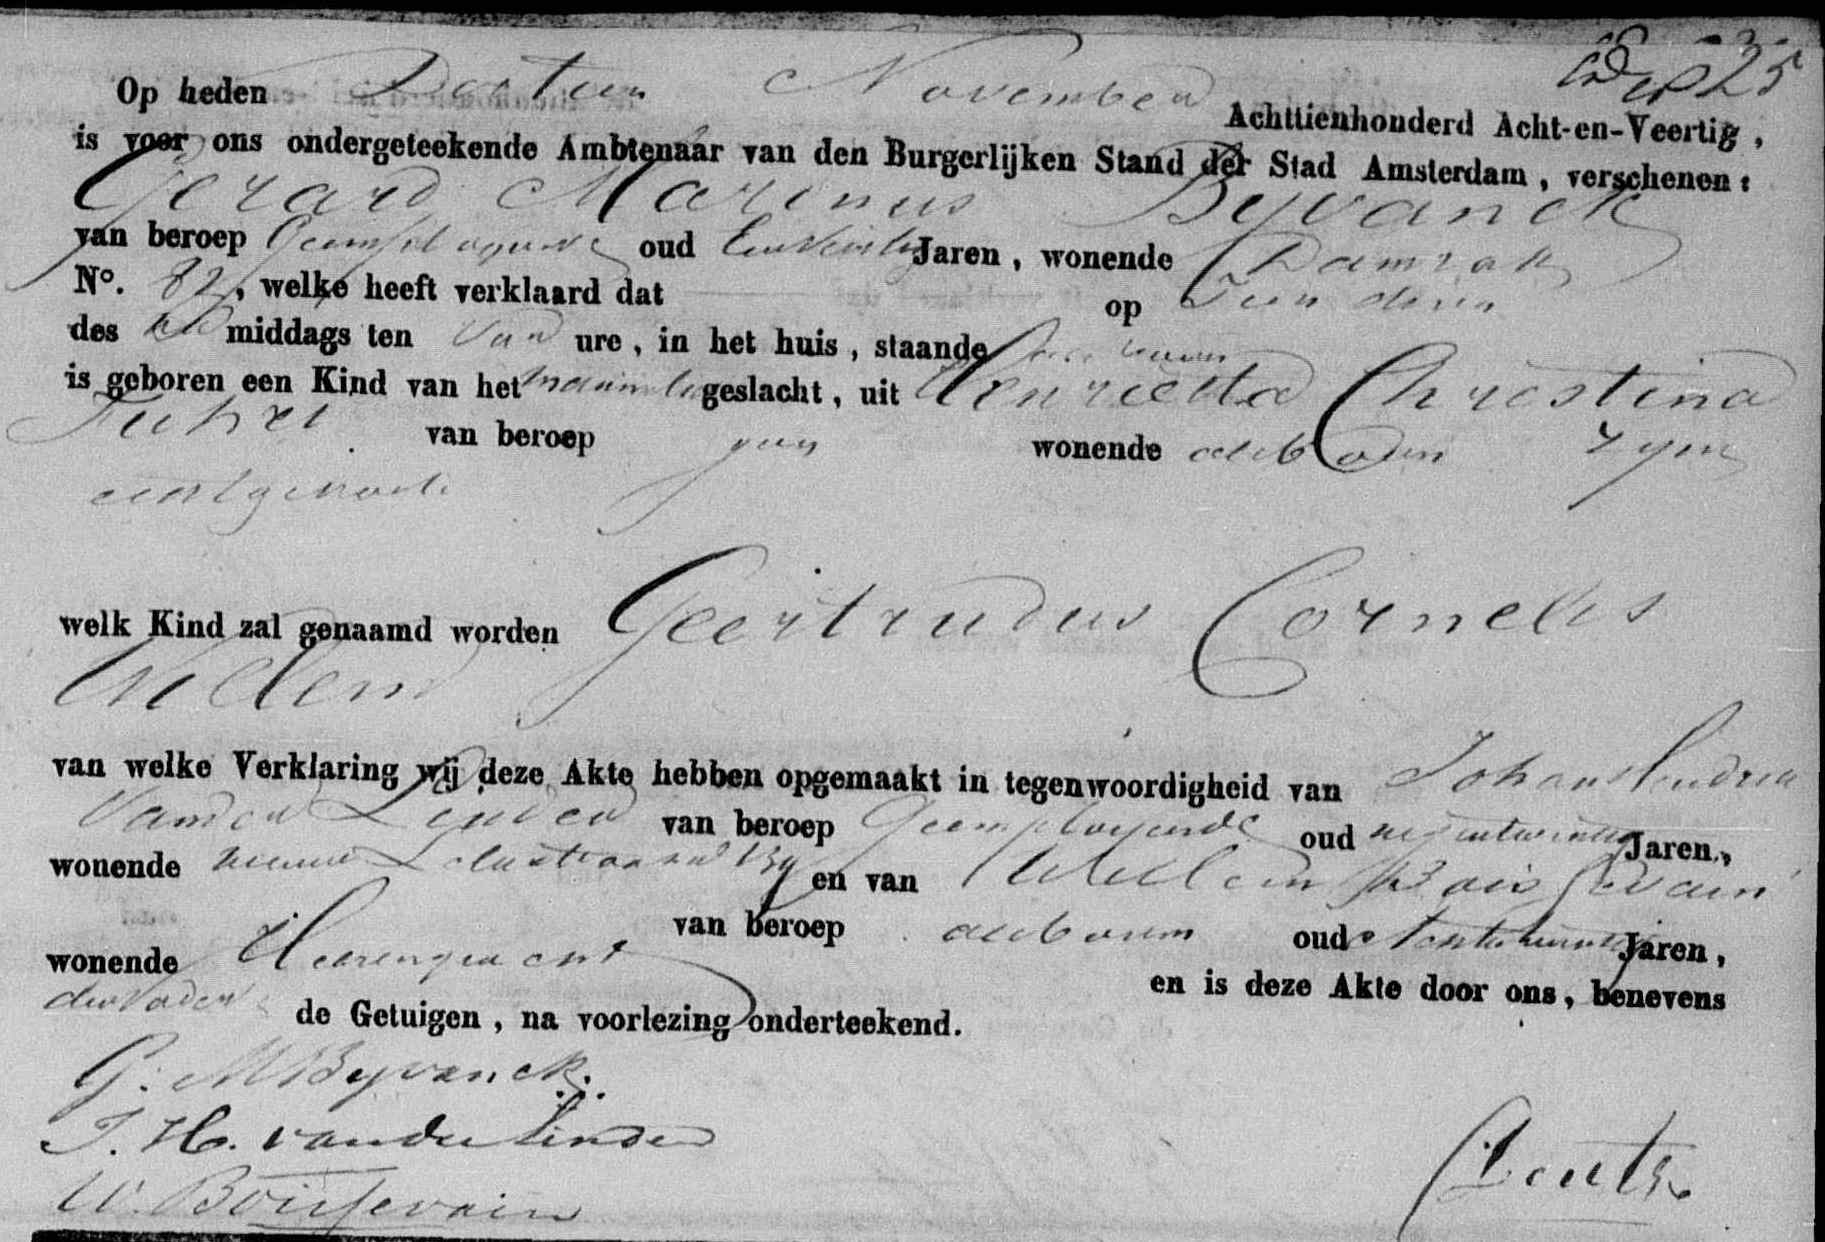 Op heden Dertien November Achttienhonderd Acht-en-Veertig,
is voor ons ondergeteekende Ambtenaar van den Burgerlijken Stand der Stad Amsterdam, verschenen:
Gerard Marinus Byvanck
van beroep Geemployeerde oud Jaren, wonende Damrak
No. 82, welke heeft verklaard dat op Tien dezer
des middags ten ure, in het huis, staande
is geboren een Kind van het geslacht, uit Henrietta Christina
van beroep geen wonende als boven zyne
echtgenoote
welk Kind zal genaamd worden Geertrudus Cornelis
Willem
van welke Verklaring wij deze Akte hebben opgemaakt in tegenwoordigheid van Johan Hendrik
van der Linden van beroep Geemployeerde oud negentwintig Jaren,
wonende nieuwe en van Willem Boissevain
van beroep als boven oud Jaren,
wonende Heerengracht en is deze Akte door ons, benevens
den Vader de Getuigen, na voorlezing onderteekend.
G. M Byvanck.
J. H. van der Linden
W. Boissevain